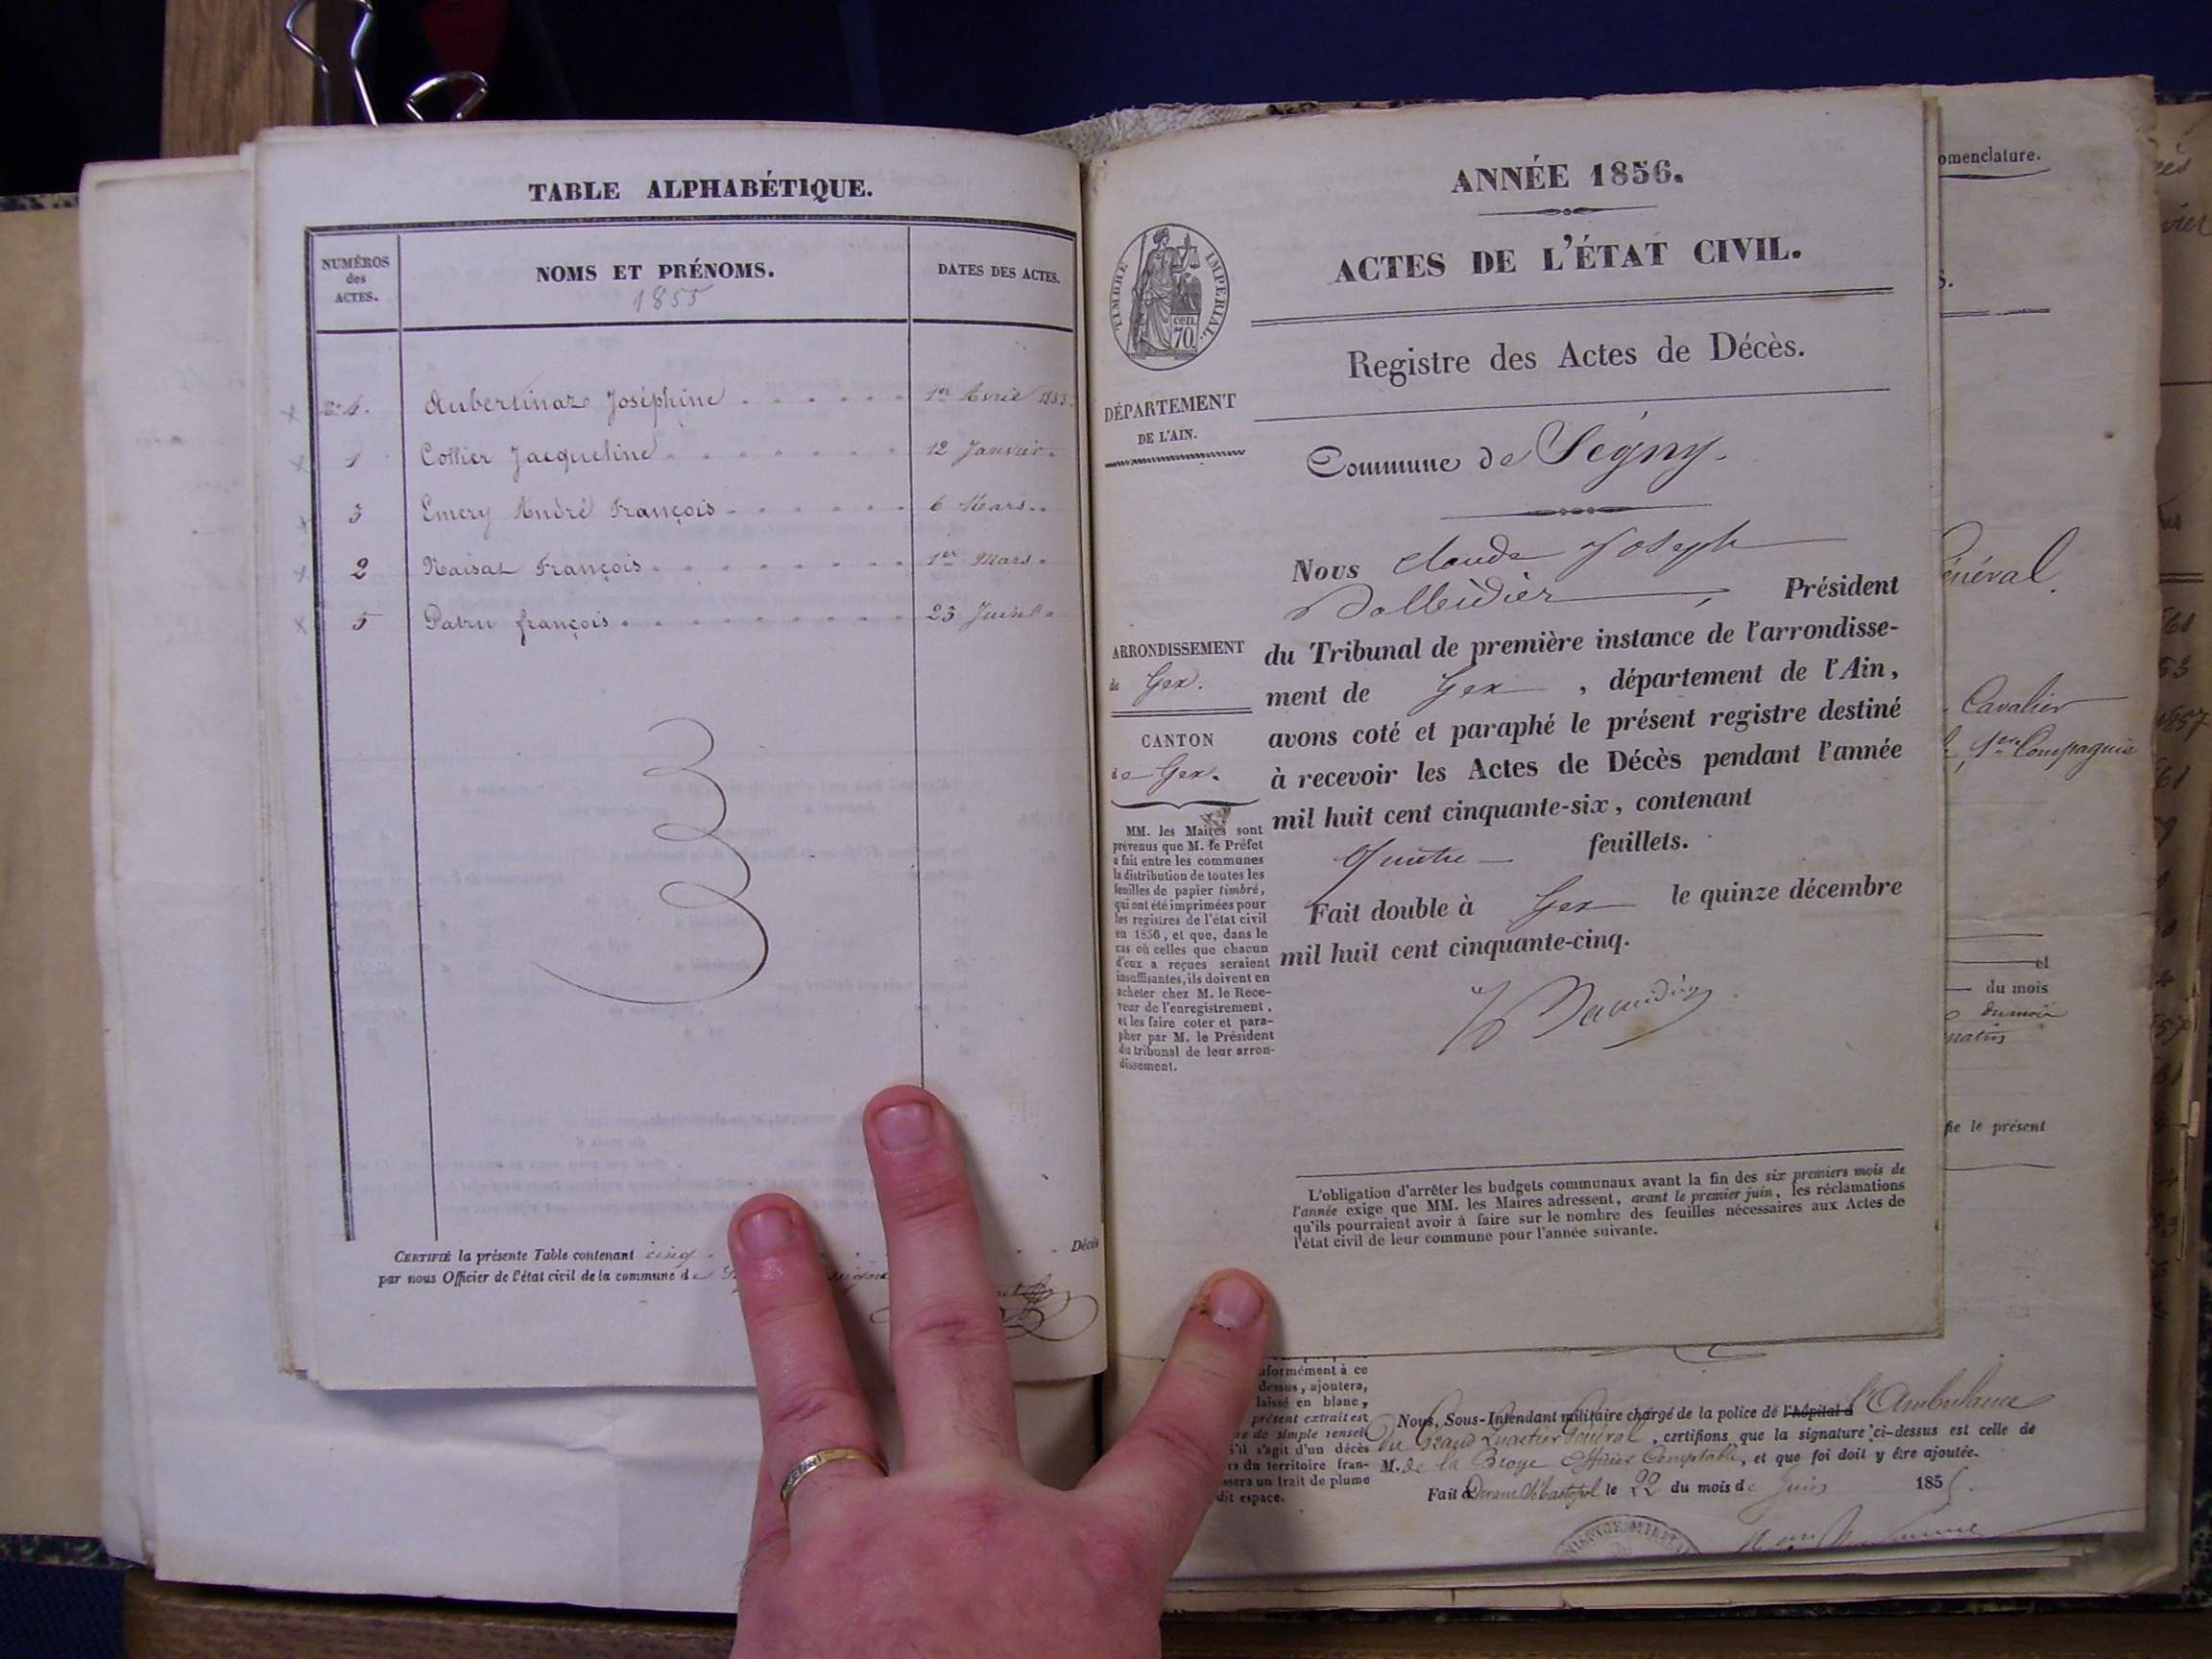 TABLE ALPHABÉTIQUE.
NUMÉROS
des
ACTES.
NOMS ET PRÉNOMS.
1855
DATES DES ACTES.
N° 4. Aubertinaz Joséphine 1er Avril 1855.
1 Collier Jacqueline 12 Janvier.
3 Emery André François 6 Mars
2 François 1er Mars.
5 Patru françois 23
CERTIFIÉ la présente Table contenant cinq Décès
par nous Officier de l'état civil de la commune de
ANNÉE 1856.
ACTES DE L'ÉTAT CIVIL.
TIMBRE IMPÉRIAL.
cen.
70.
Registre des Actes de Décès.
DÉPARTEMENT
DE L'AIN.
Commune de Ségny.
Nous Claude Joseph
Président
ARRONDISSEMENT
de Gex.
CANTON
de Gex.
du Tribunal de première instance de l'arrondisse-
ment de Gex, département de l'Ain,
avons coté et paraphé le présent registre destiné
à recevoir les Actes de Décès pendant l'année
mil huit cent cinquante-six, contenant
Quatre feuillets.
Fait double à Gex le quinze décembre
mil huit cent cinquante-cinq.
MM. les Maires sont
prévenus que M. le Préfet
a fait entre les communes
la distribution de toutes les
feuilles de papier timbré,
qui ont été imprimées pour
les registres de l'état civil
en 1856, et que, dans le
cas où celles que chacun
d'eux a reçues seraient
insuffisantes, ils doivent en
acheter chez M. le Rece-
veur de l'enregistrement,
et les faire coter et para-
pher par M. le Président
du tribunal de leur arron-
dissement.
L'obligation d'arrêter les budgets communaux avant la fin des six premiers mois de
l'année exige que MM. les Maires adressent, avant le premier juin, les réclamations
qu'ils pourraient avoir à faire sur le nombre des feuilles nécessaires aux Actes de
l'état civil de leur commune pour l'année suivante.
omenclature.
énéral.
Cavalier
1ère Compagnie
et
du mois
du mois
matin
fie le présent
nformément à ce
dessus, ajoutera,
laissé en blanc,
présent extrait est
re de simple rensei-
s'il s'agit d'un décès
rs du territoire fran-
ssera un trait de plume
dit espace.
Nous, Sous-Intendant militaire chargé de la police de l'hôpital d l'Ambulance
du Grand Quartier Général, certifions que la signature ci-dessus est celle de
M. de la Broye Officier Comptable, et que foi doit y être ajoutée.
Fait à Devant Sébastopol le 22 du mois de Juin 1855.